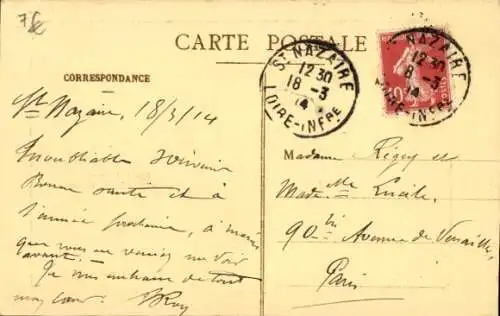 7€
CARTE POSTALE
CORRESPONDANCE
St Nazaire, 18/3/14
Inoubliable souvenir
Bonne santé et à
l'année prochaine, à moins
que vous ne veniez me voir
avant. -
Je vous embrasse de tout
mon cœur.
ST NAZAIRE
12 30
18 - 3
14
LOIRE-INFRE
ST NAZAIRE
12 30
8 - 3
14
LOIRE-INFRE
10
POSTES
Madame et
Made lle Lucile.
90 bis Avenue de Versailles
Paris